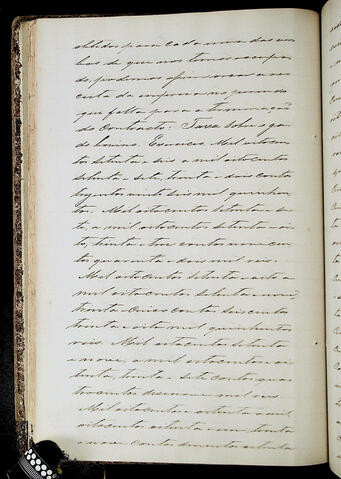 obtido para cada uma das ver
bas de que nos temos occupa
do, podemos apurar a re
ceita da empreza no periodo
que falta para a terminação
do Contracto. Taxa sobre o ga
do bovino. Exercicio Mil oitocen
tos setenta e seis a mil oitocentos
setenta e sete, trinta e dois contos
trezentos vinte seis mil quinhen
tos. Mil oitocentos setenta e se
te, a mil oitocentos setenta e oi
to, trinta e tres contos nove cen
tos quarenta e dois mil reis.
Mil oitocentos setenta e oito a
mil oitocentos setenta e nove,
trinta e cinco contos seis centos
trinta e oito mil, quinhentos
reis. Mil oitocentos setenta
e nove, a mil oitocentos oi
tenta, trinta e sete contos qua
trocentos desenove mil reis
Mil oitocentos e oitenta a mil
oitocentos oitenta e um, trinta
e nove contos duzentos oitenta